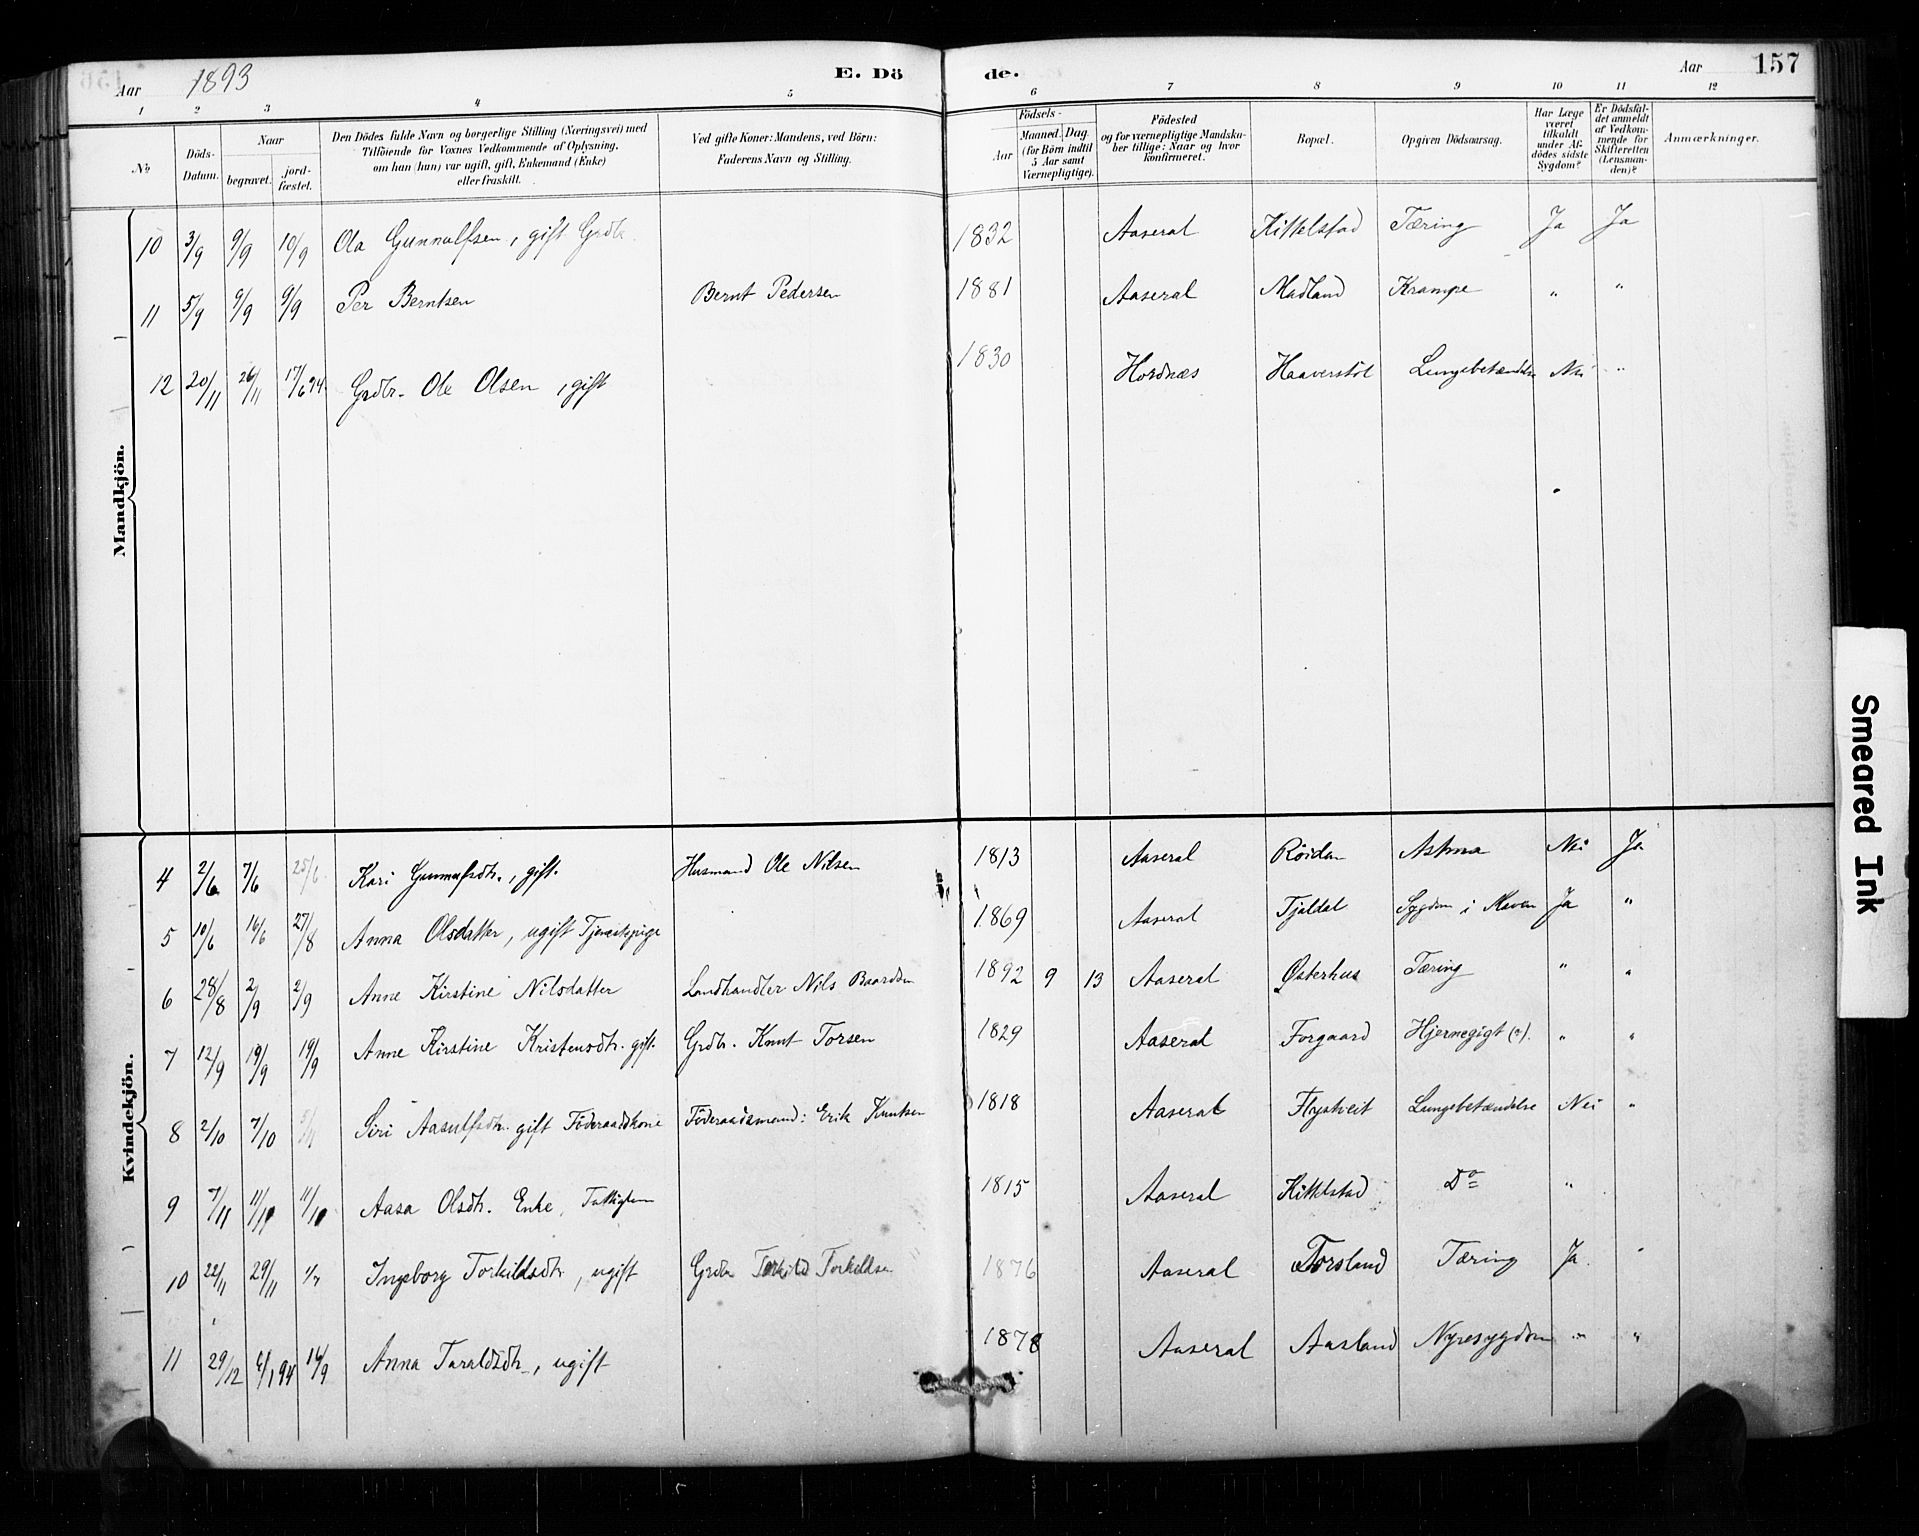 Aar 1893 E. Dö de. Aar 157
1 2 3 4 5 6 7 8 9 10 11 12
No Döds-Datum. Naar begravet. jord-fæstet. Den Dödes fulde Navn og borgerlige Stilling (Næringsvei) med Tilföiende for Voxnes Vedkommende af Oplysning, om han (hun) var ugift, gift, Enkemand (Enke) eller fraskilt. Ved gifte Koner: Mandens, ved Börn: Faderens Navn og Stilling. Födsels- Aar Maaned. Dag. (for Börn indtil 5 Aar samt Værnepligtige). Födested og for værnepligtige Mandskaber tillige: Naar og hvor konfirmeret. Bopæl. Opgiven Dödsaarsag. Har Læge været tilkaldt under Afdödes sidste Sygdom? Er Dödsfaldet anmeldt af Vedkommende for Skifteretten (Lensmanden)? Anmærkninger.
Mandkjön.
10 3/9 9/9 10/9 Ola Gunnulfsen, gift Grdbr. 1832 Aaseral Kittelstad Tæring Ja Ja
11 5/9 9/9 9/9 Per Berntsen Bernt Pedersen 1881 Aaseral Madland Krampe " "
12 20/11 26/11 17/6 94 Grdbr. Ole Olsen, gift 1830 Hordnæs Haaverstöl Lungebetændelse Nei "
Kvindekjön.
4 2/6 7/6 25/6 Kari Gunnulfsdtr., gift. Husmand Ole Nilsen 1813 Aaseral Röidan Astma Nei Ja
5 10/6 16/6 27/8 Anna Olsdatter, ugift Tjenestepige 1869 Aaseral Tjaldal Sygdom i Maven Ja "
6 28/8 2/9 2/9 Anne Kirstine Nilsdatter Landhandler Nils Baardsen 1892 9 13 Aaseral Østerhus Tæring " "
7 12/9 19/9 19/9 Anne Kirstine Kristensdtr. gift. Grdbr. Knut Torsen 1829 Aaseral Forgaard Hjernegigt (?). " "
8 2/10 7/10 Siri Aasulfsdtr. gift Föderaadskone Föderaadsmand: Erik Knutsen 1818 Aaseral Flystveit Lungebetændelse Nei "
9 7/11 11/10 11/10 Aasa Olsdtr. Enke, Fattiglem 1815 Aaseral Kittelstad Do "
10 22/11 29/11 Ingeborg Torkildsdtr, ugift Grdbr Torkild Torkildsen 1876 Aaseral Torsland Tæring Ja "
11 29/12 6/1 94 16/9 Anna Taraldsdtr, ugift 1878 Aaseral Aasland Nyresygdom " "
Smeared Ink